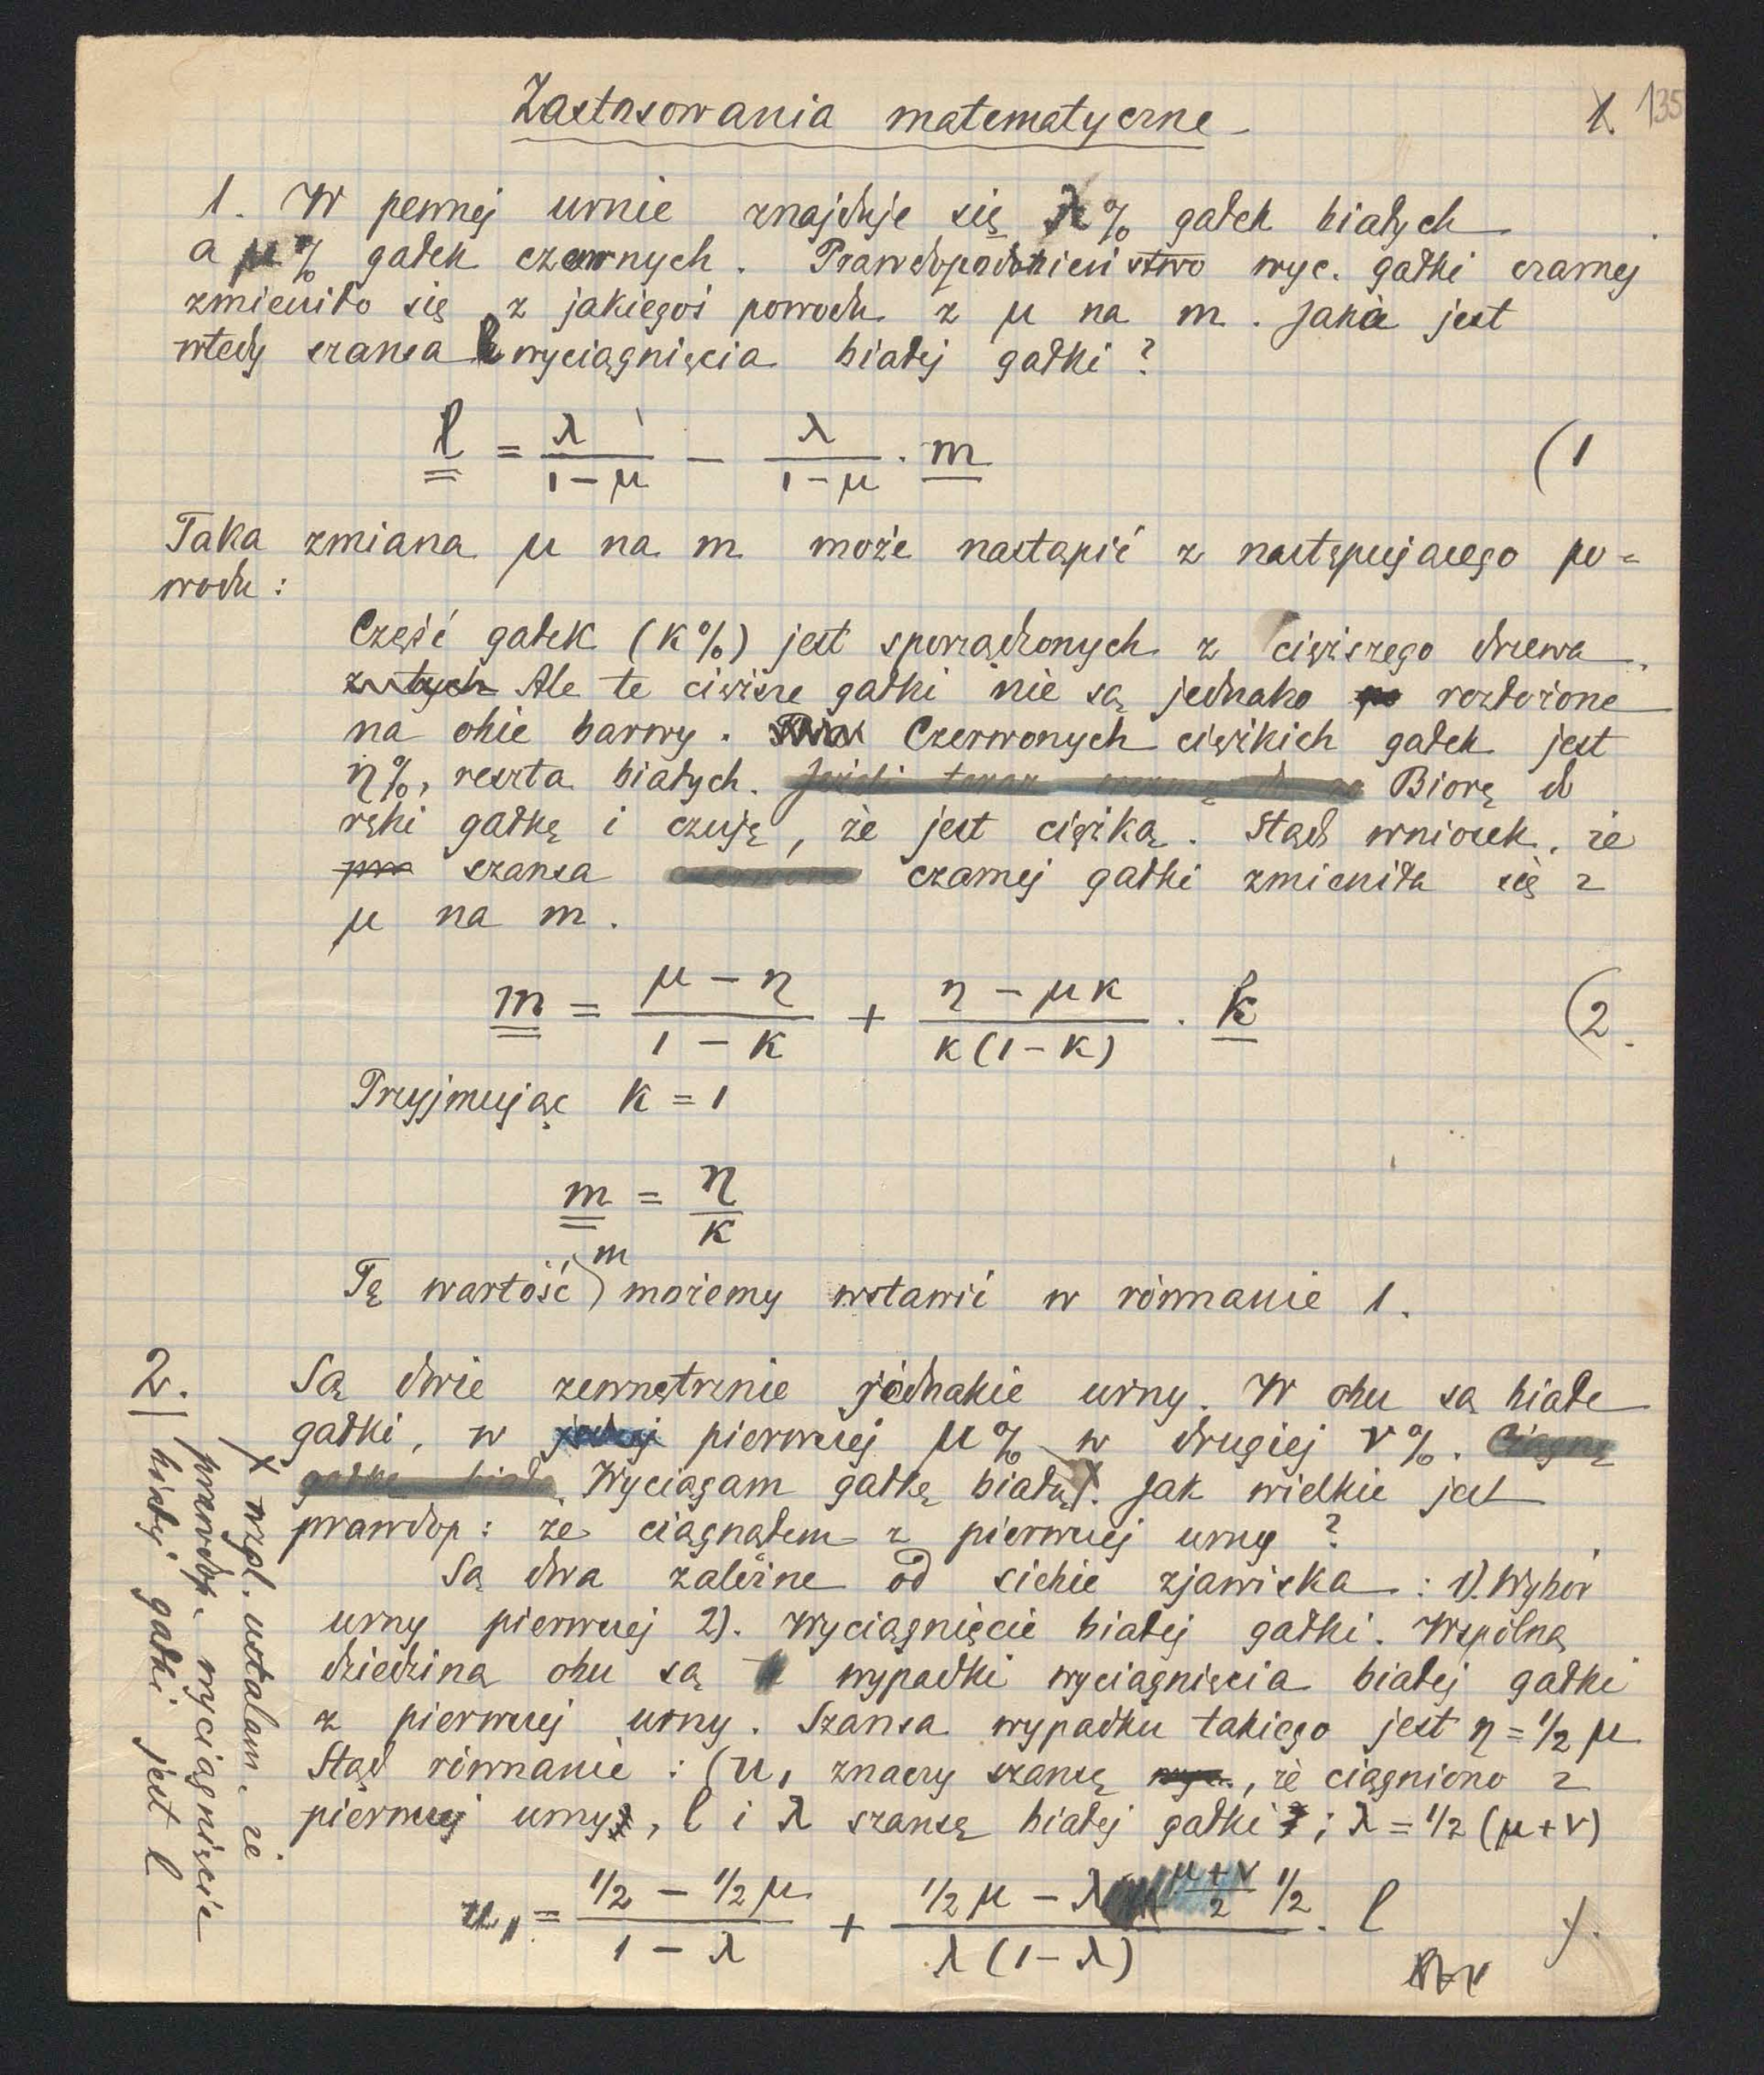 Zastosowania matematyczne
1. 135
1. W pewnej urnie znajduje się λ% gałek białych
a μ% gałek czarnych. Prawdopodobieństwo wyc. gałki czarnej
zmieniło się z jakiegoś powodu z μ na m. Jaka jest
wtedy szansa l wyciągnięcia białej gałki?
l = λ/(1-μ) - λ/(1-μ) · m (1
Taka zmiana μ na m może nastąpić z następującego po=
wodu:
Część gałek (κ%) jest sporządzonych z cięższego drzewa.
z tych Ale te cięższe gałki nie są jednako rozłożone
na obie barwy. Czerwonych ciężkich gałek jest
η%, reszta białych. Jeżeli teraz wezmę do Biorę do
ręki gałkę i czuję, że jest ciężką. Stąd wniosek, że
szansa czarnej gałki zmieniła się z
μ na m.
m = (μ - η)/(1 - κ) + (η - μκ)/(κ(1-κ)) · k (2.
Przyjmując k = 1
m = η/κ
m
Tę wartość) możemy wstawić w równanie 1.
2. Są dwie zewnętrznie jednakie urny. W obu są białe
gałki, w jednej pierwszej μ% w drugiej ν%. Ciągnę
gałkę białą. Wyciągam gałkę białą x. Jak wielkie jest
prawdop: że ciągnąłem z pierwszej urny?
Są dwa zależne od siebie zjawiska: 1). Wybór
urny pierwszej 2). Wyciągnięcie białej gałki. Wspólną
dziedziną obu są wypadki wyciągnięcia białej gałki
z pierwszej urny. Szansa wypadku takiego jest η = 1/2 μ
Stąd równanie: (u₁ znaczy szansę, że ciągniono z
pierwszej urny, l i λ szansę białej gałki; λ = 1/2 (μ+ν)
u₁ = (1/2 - 1/2 μ)/(1 - λ) + (1/2 μ - λ (μ+ν)/2 1/2)/(λ(1-λ)) · l
x wzgl. ustalam, że
prawdop. wyciągnięcie
białej gałki jest l